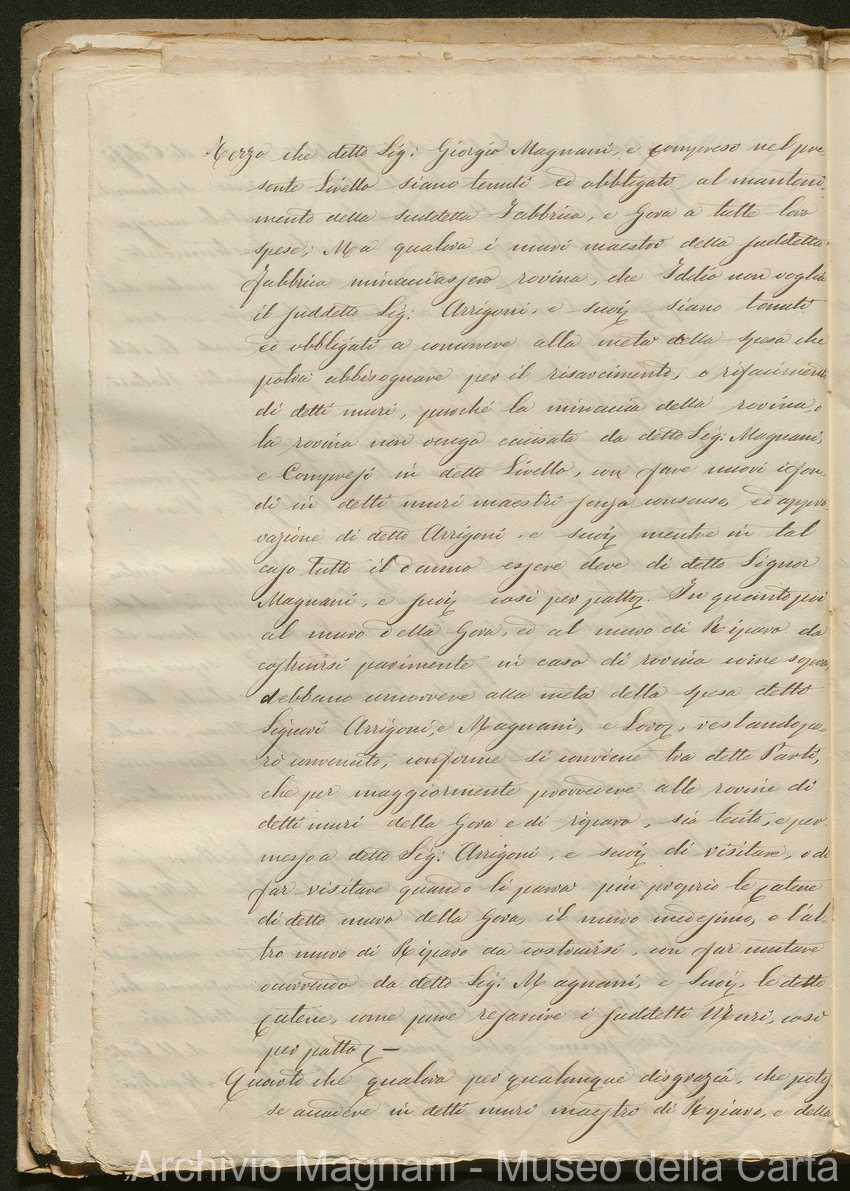 Terzo che detto Sig: Giorgio Magnani, e compreso nel pre
sente Livello siano tenuti ed obbligati al manteni
mento della suddetta Fabbrica, e Gora a tutte loro
spese; Ma qualora i muri maestri della suddetta
Fabbrica minacciassero rovina, che Iddio non voglia
il suddetto Sig: Arrigoni, e suoi siano tenuti
ed obbligati a concorrere alla metà della spesa che
potrà abbisognare per il risarcimento, o rifacimento
di detti muri, purché la minaccia della rovina, o
la rovina non venga causata da detto Sig: Magnani,
e Compresi in detto Livello, con fare nuovi isfon
di in detti muri maestri senza consenso, ed appro
vazione di detto Arrigoni, e suoi mentre in tal
caso tutto il danno essere deve di detto Signor
Magnani, e suoi così per patto. In quanto poi
al muro della Gora, ed al muro di Riparo da
costruirsi parimente in caso di rovina come sopra,
debbano concorrere alla metà della spesa detto
Signori Arrigoni, e Magnani, e Loro, restando pa
rò convenuto, conforme si conviene tra dette Parti,
che per maggiormente provvedere alle rovine di
detti muri della Gora e di riparo, sia lecito, e per
messo a detto Sig: Arrigoni, e suoi di visitare, o di
far visitare quando li parrà più proprio le catene
di detto muro della Gora, il muro medesimo, e l'al
tro muro di Riparo da costruirsi, con far mutare
occorrendo da detto Sig: Magnani, e Suoi, le dette
catene, come pure resarcire i suddetti Muri, così
per patto —
Quarto che qualora per qualunque disgrazia, che potes
se accadere in detti muri maestri di Riparo, e della
Archivio Magnani - Museo della Carta